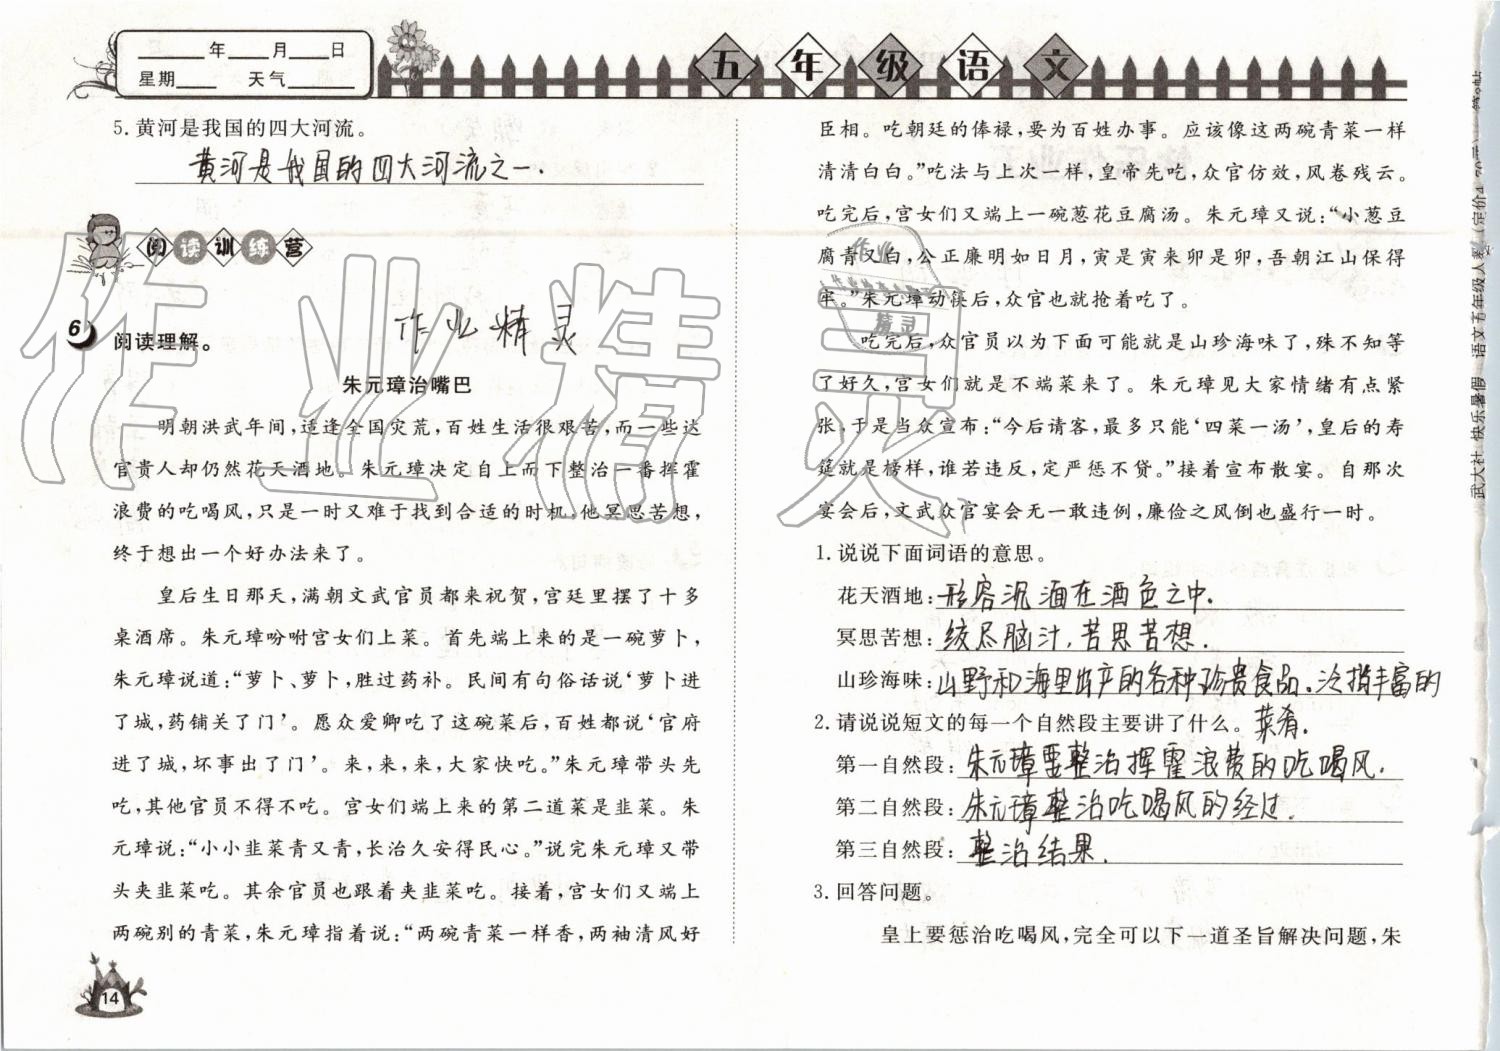 ____年___月___日
星期____ 天气______
五年级语文
5. 黄河是我国的四大河流。
黄河是我国的四大河流之一.
阅读训练营
6
阅读理解。
作业精灵
朱元璋治嘴巴
明朝洪武年间,适逢全国灾荒,百姓生活很艰苦,而一些达
官贵人却仍然花天酒地。朱元璋决定自上而下整治一番挥霍
浪费的吃喝风,只是一时又难于找到合适的时机,他冥思苦想,
终于想出一个好办法来了。
皇后生日那天,满朝文武官员都来祝贺,宫廷里摆了十多
桌酒席。朱元璋吩咐宫女们上菜。首先端上来的是一碗萝卜,
朱元璋说道:“萝卜、萝卜,胜过药补。民间有句俗话说‘萝卜进
了城,药铺关了门’。愿众爱卿吃了这碗菜后,百姓都说‘官府
进了城,坏事出了门’。来,来,来,大家快吃。”朱元璋带头先
吃,其他官员不得不吃。宫女们端上来的第二道菜是韭菜。朱
元璋说:“小小韭菜青又青,长治久安得民心。”说完朱元璋又带
头夹韭菜吃。其余官员也跟着夹韭菜吃。接着,宫女们又端上
两碗别的青菜,朱元璋指着说:“两碗青菜一样香,两袖清风好
14
臣相。吃朝廷的俸禄,要为百姓办事。应该像这两碗青菜一样
清清白白。”吃法与上次一样,皇帝先吃,众官仿效,风卷残云。
吃完后,宫女们又端上一碗葱花豆腐汤。朱元璋又说:“小葱豆
腐青又白,公正廉明如日月,寅是寅来卯是卯,吾朝江山保得
牢。”朱元璋动筷后,众官也就抢着吃了。
吃完后,众官员以为下面可能就是山珍海味了,殊不知等
了好久,宫女们就是不端菜来了。朱元璋见大家情绪有点紧
张,于是当众宣布:“今后请客,最多只能‘四菜一汤’,皇后的寿
筵就是榜样,谁若违反,定严惩不贷。”接着宣布散宴。自那次
宴会后,文武众官宴会无一敢违例,廉俭之风倒也盛行一时。
1. 说说下面词语的意思。
花天酒地:形容沉湎在酒色之中.
冥思苦想:绞尽脑汁,苦思苦想.
山珍海味:山野和海里出产的各种珍贵食品。泛指丰富的
菜肴.
2. 请说说短文的每一个自然段主要讲了什么。
第一自然段:朱元璋要整治挥霍浪费的吃喝风.
第二自然段:朱元璋整治吃喝风的经过.
第三自然段:整治结果.
3. 回答问题。
皇上要惩治吃喝风,完全可以下一道圣旨解决问题,朱
作业精灵